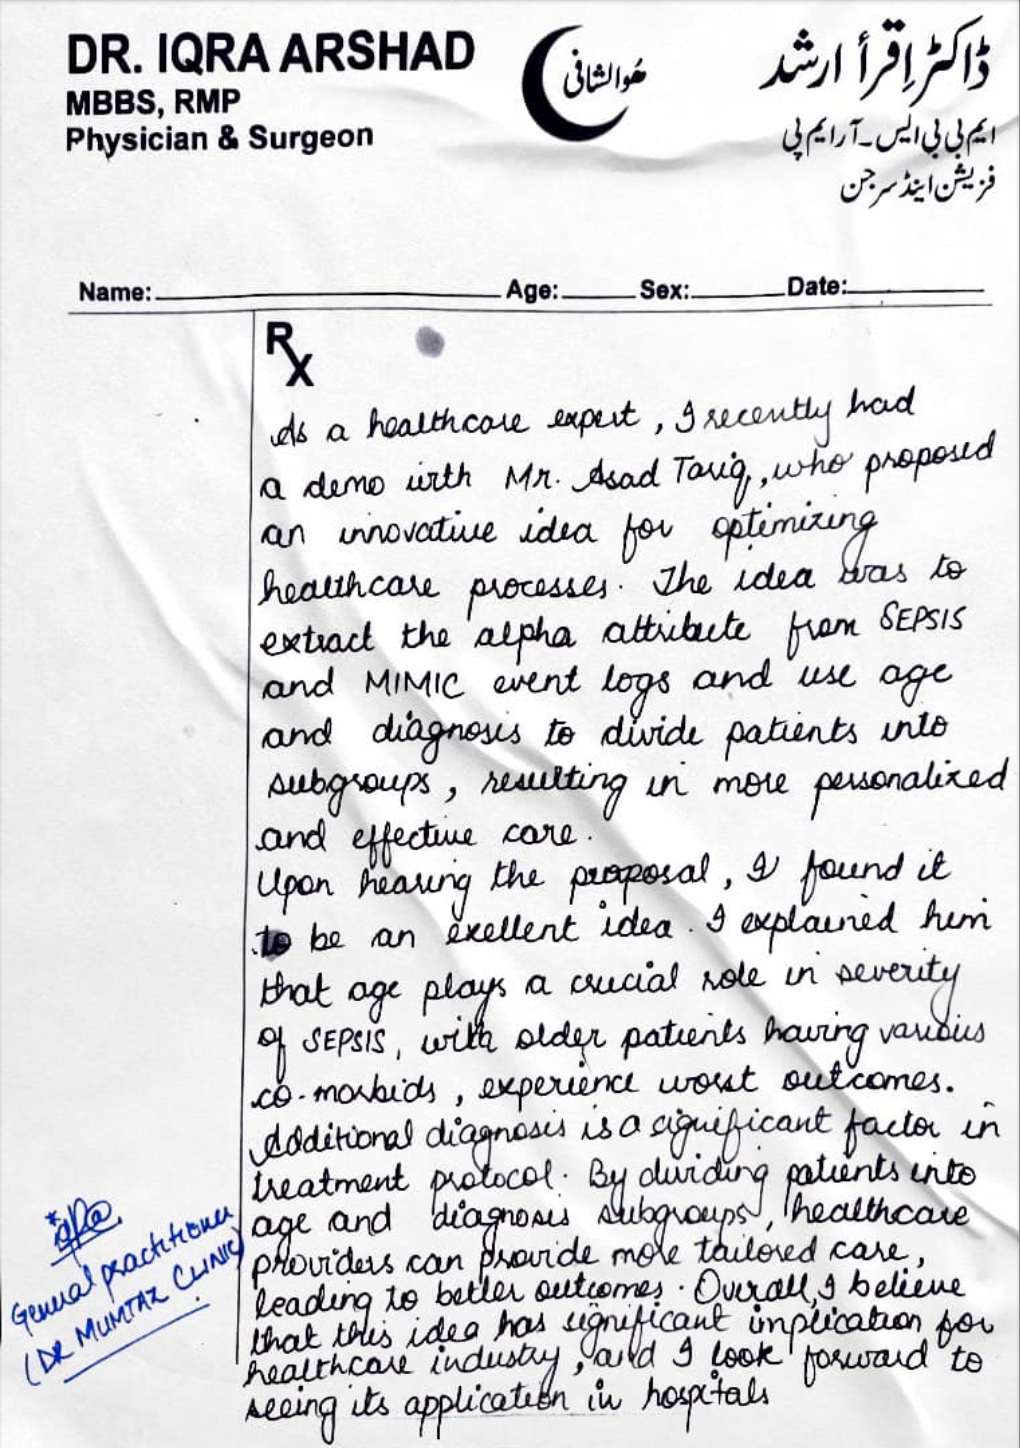 DR. IQRA ARSHAD
MBBS, RMP
Physician & Surgeon
ھوالشافی
ڈاکٹر اِقرأ ارشد
ایم بی بی ایس۔آر ایم پی
فزیشن اینڈ سرجن
Name: Age: Sex: Date:
Rx
As a healthcare expert, I recently had
a demo with Mr. Asad Tariq, who proposed
an innovative idea for optimizing
healthcare processes. The idea was to
extract the alpha attribute from SEPSIS
and MIMIC event logs and use age
and diagnosis to divide patients into
subgroups, resulting in more personalized
and effective care.
Upon hearing the proposal, I found it
to be an exellent idea. I explained him
that age plays a crucial role in severity
of SEPSIS, with older patients having various
co-morbids, experience worst outcomes.
Additional diagnosis is a significant factor in
treatment protocol. By dividing patients into
age and diagnosis subgroups, healthcare
providers can provide more tailored care,
leading to better outcomes. Overall, I believe
that this idea has significant implication for
healthcare industry, and I look forward to
seeing its application in hospitals
General practitioner
(DR MUMTAZ CLINIC)